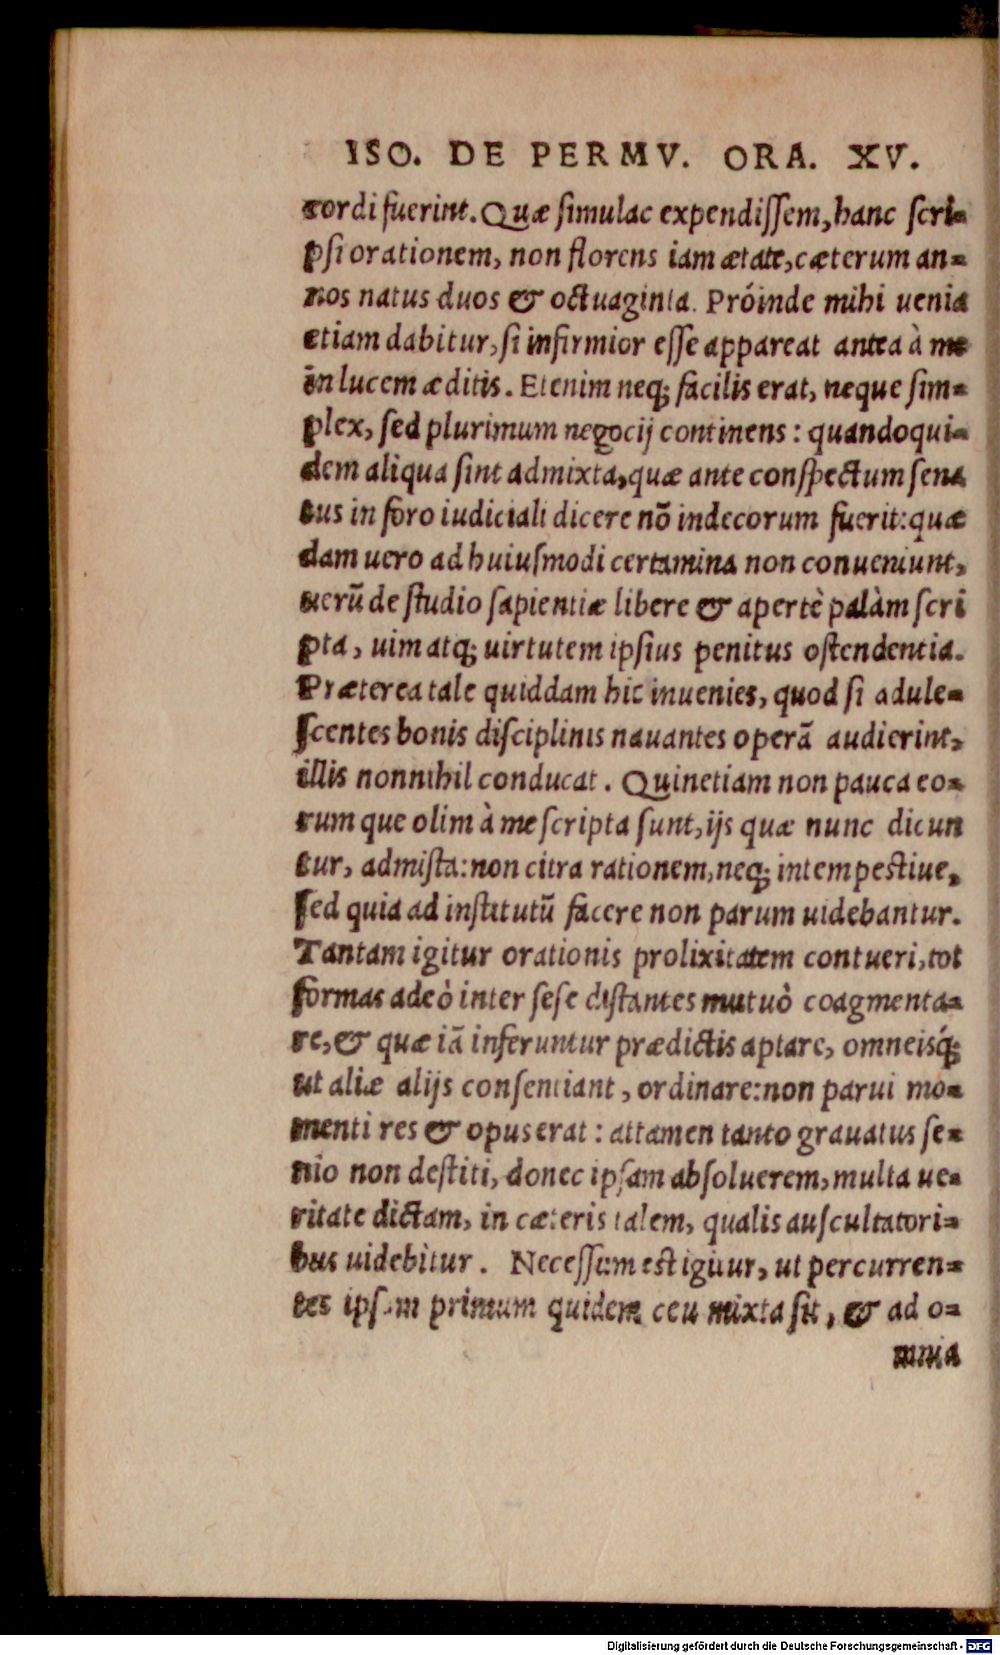 ISO. DE PERMV. ORA. XV.
cordi fuerint. Quæ simulac expendissem, hanc scri=
psi orationem, non florens iam ætate, cæterum an=
nos natus duos & octuaginta. Próinde mihi uenia
etiam dabitur, si infirmior esse appareat antea à me
in lucem æditis. Etenim neq; facilis erat, neque sim=
plex, sed plurimum negocij continens : quandoqui=
dem aliqua sint admixta, quæ ante conspectum sena
tus in foro iudiciali dicere nõ indecorum fuerit: quæ
dam uero ad huiusmodi certamina non conueniunt,
uerũ de studio sapientiæ libere & apertè palàm scri
pta, uim atq; uirtutem ipsius penitus ostendentia.
Præterea tale quiddam hic inuenies, quod si adule=
scentes bonis disciplinis nauantes operã audierint,
illis nonnihil conducat. Quinetiam non pauca eo=
rum que olim à me scripta sunt, ijs quæ nunc dicun
tur, admista: non citra rationem, neq; intempestiue,
sed quia ad institutũ facere non parum uidebantur.
Tantam igitur orationis prolixitatem contueri, tot
formas adeò inter sese distantes mutuò coagmenta=
re, & quæ iã inferuntur prædictis aptare, omneisq́;
ut aliæ alijs consentiant, ordinare: non parui mo=
menti res & opus erat : attamen tanto grauatus se=
nio non destiti, donec ipsam absoluerem, multa ue=
ritate dictam, in cæteris talem, qualis auscultatori=
bus uidebitur. Necessum est igitur, ut percurren=
tes ipsam primum quidem ceu mixta sit, & ad o=
mnia
Digitalisierung gefördert durch die Deutsche Forschungsgemeinschaft - DFG